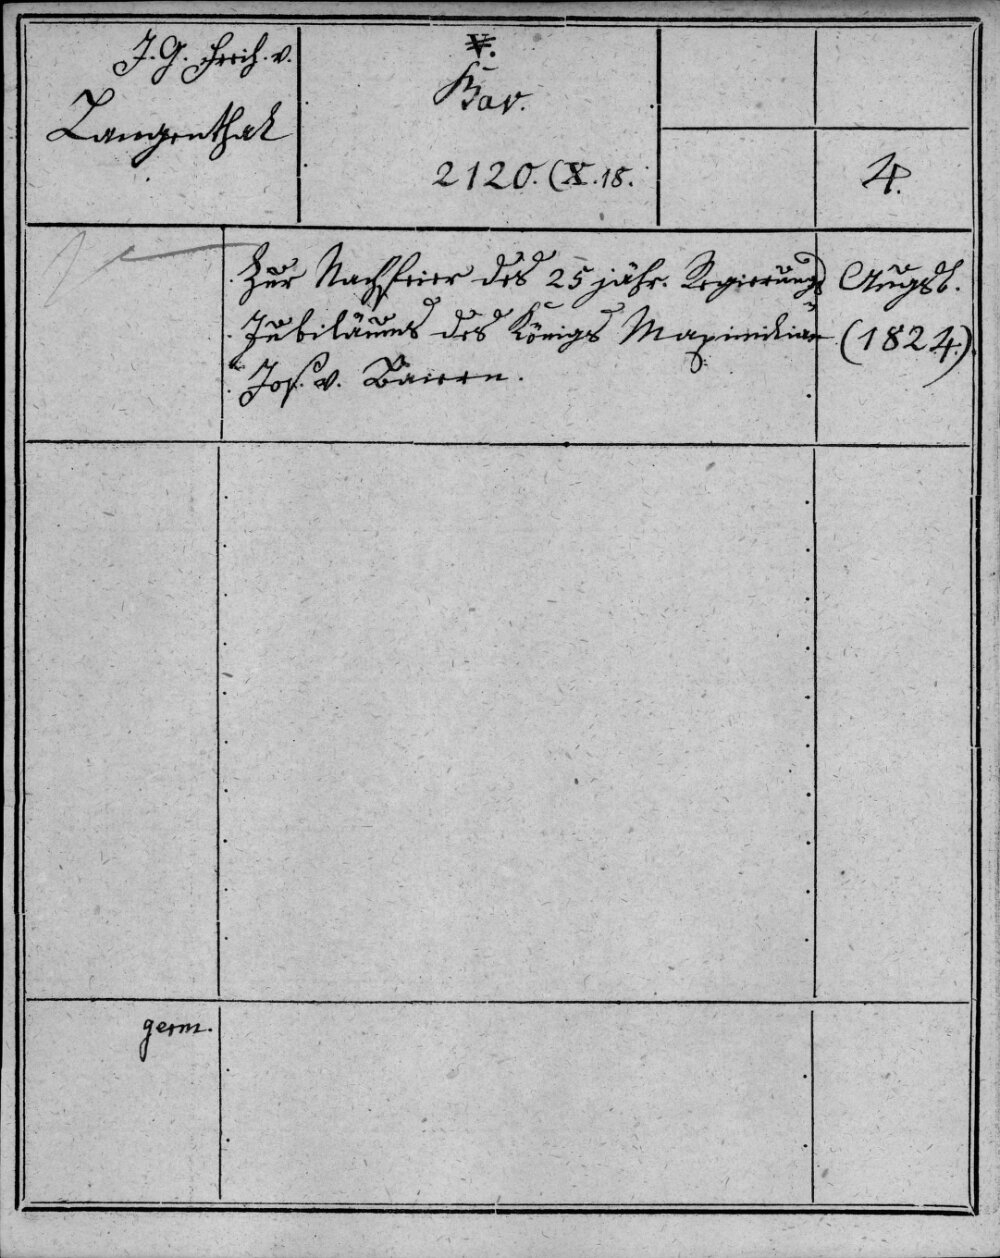 J. G. Freih. v.
Langenthal
V.
Bav.
2120. (X.18.
4.
Zur Nachfeier des 25 jähr. Regierungs
Jubiläums des Königs Maximilian
Jos. v. Baiern.
Augsb.
(1824.)
germ.